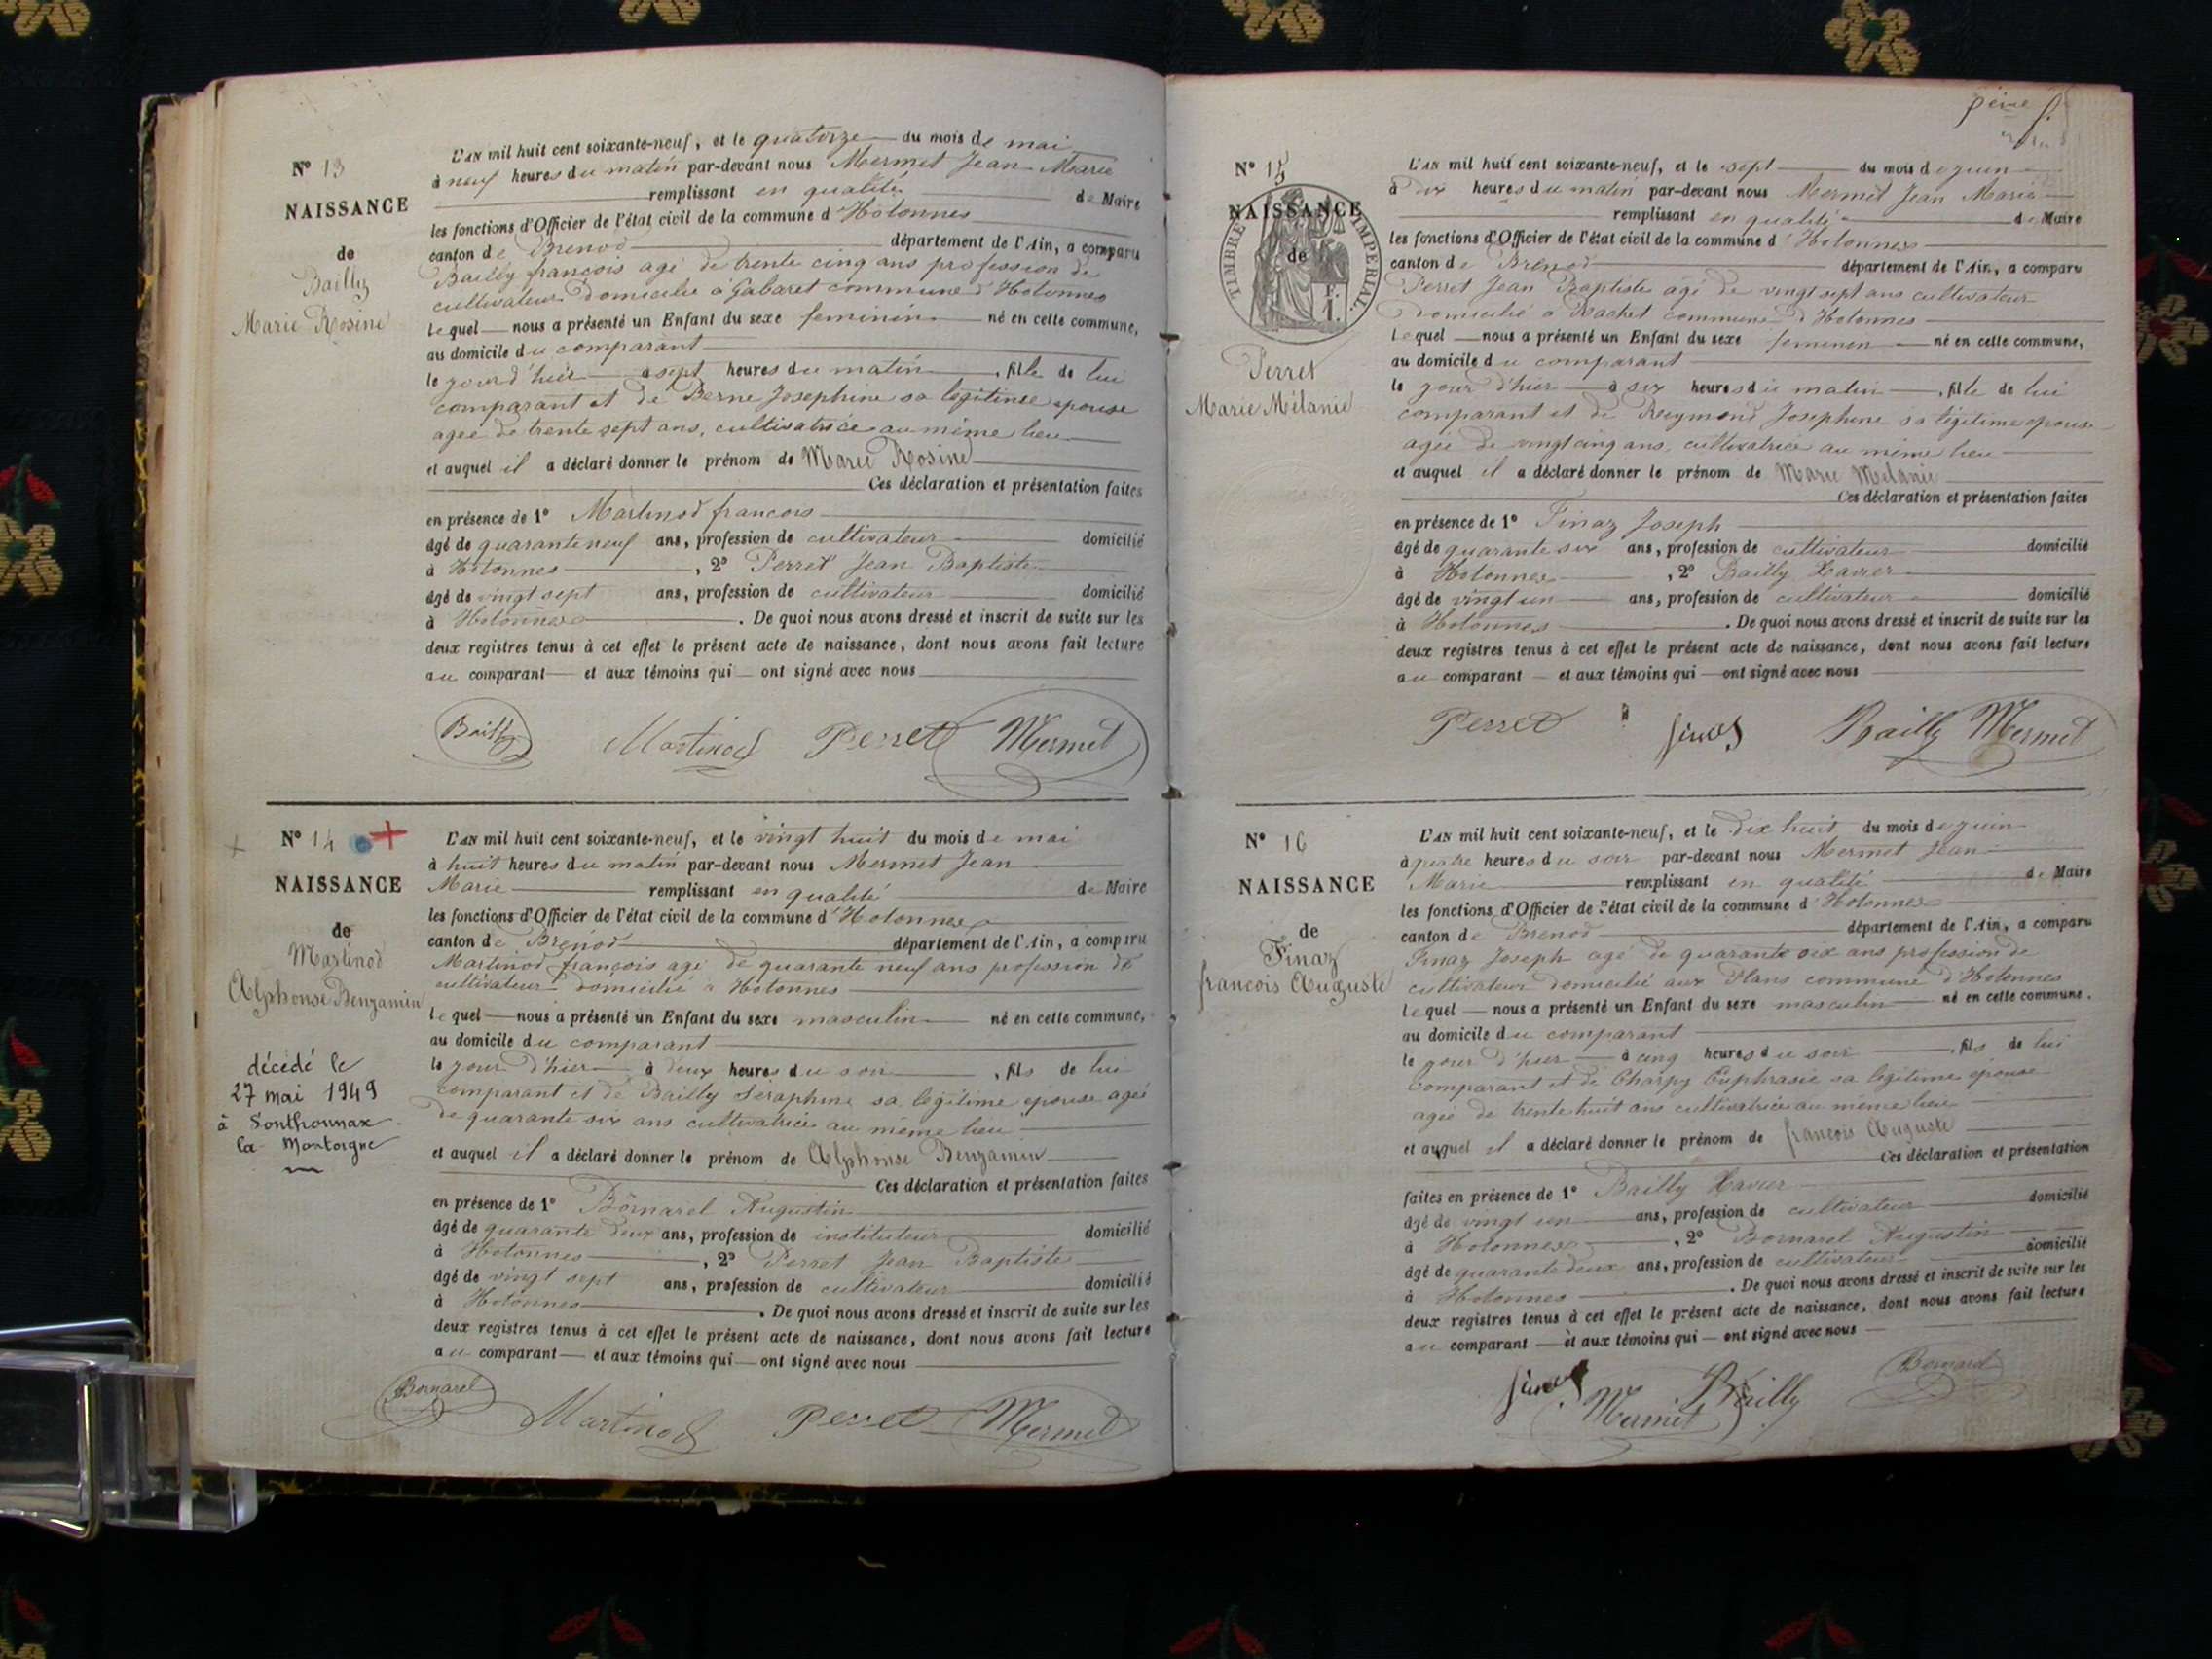 N° 13
NAISSANCE
de
Bailly
Marie Rosine
L'AN mil huit cent soixante-neuf, et le quatorze du mois de mai
à neuf heures du matin par-devant nous Mermet Jean Marie
remplissant en qualité de Maire
les fonctions d'Officier de l'état civil de la commune d'Hotonnes
canton de Brenod département de l'Ain, a comparu
Bailly françois agé de trente cinq ans profession de
cultivateur domicilié à Gabaret commune d'Hotonnes
lequel nous a présenté un Enfant du sexe feminin né en cette commune,
au domicile du comparant
le jour d'hier à sept heures du matin, fille de lui
comparant et de Berne Josephine sa légitime epouse
agée de trente sept ans, cultivatrice au même lieu
et auquel il a déclaré donner le prénom de Marie Rosine
Ces déclaration et présentation faites
en présence de 1° Martinod francois
âgé de quarante neuf ans, profession de cultivateur domicilié
à Hotonnes, 2° Perret Jean Baptiste
âgé de vingt sept ans, profession de cultivateur domicilié
à Hotonnes. De quoi nous avons dressé et inscrit de suite sur les
deux registres tenus à cet effet le présent acte de naissance, dont nous avons fait lecture
au comparant et aux témoins qui ont signé avec nous
Bailly Martinod Perret Mermet
N° 14
NAISSANCE
de
Martinod
Alphonse Benjamin
décédé le
27 mai 1949
à Sonthonnax
la Montagne
L'AN mil huit cent soixante-neuf, et le vingt huit du mois de mai
à huit heures du matin par-devant nous Mermet Jean
Marie remplissant en qualité de Maire
les fonctions d'Officier de l'état civil de la commune d'Hotonnes
canton de Brenod département de l'Ain, a comparu
Martinod françois agé de quarante neuf ans profession de
cultivateur domicilié à Hotonnes
lequel nous a présenté un Enfant du sexe masculin né en cette commune,
au domicile du comparant
le jour d'hier à deux heures du soir, fils de lui
comparant et de Bailly Séraphine sa légitime épouse agée
de quarante six ans cultivatrice au même lieu
et auquel il a déclaré donner le prénom de Alphonse Benjamin
Ces déclaration et présentation faites
en présence de 1° Bornarel Augustin
âgé de quarante deux ans, profession de instituteur domicilié
à Hotonnes, 2° Perret Jean Baptiste
âgé de vingt sept ans, profession de cultivateur domicilié
à Hotonnes. De quoi nous avons dressé et inscrit de suite sur les
deux registres tenus à cet effet le présent acte de naissance, dont nous avons fait lecture
au comparant et aux témoins qui ont signé avec nous
Bornarel Martinod Perret Mermet
N° 15
NAISSANCE
de
TIMBRE IMPERIAL
1 F.
Perret
Marie Mélanie
L'AN mil huit cent soixante-neuf, et le sept du mois de juin
à dix heures du matin par-devant nous Mermet Jean Marie
remplissant en qualité de Maire
les fonctions d'Officier de l'état civil de la commune d'Hotonnes
canton de Brenod département de l'Ain, a comparu
Perret Jean Baptiste agé de vingt sept ans cultivateur
domicilié à Rachet commune d'Hotonnes
lequel nous a présenté un Enfant du sexe feminin né en cette commune,
au domicile du comparant
le jour d'hier à six heures du matin, fille de lui
comparant et de Reymond Josephine sa légitime epouse
agée de vingt cinq ans, cultivatrice au même lieu
et auquel il a déclaré donner le prénom de Marie Mélanie
Ces déclaration et présentation faites
en présence de 1° Finaz Joseph
âgé de quarante six ans, profession de cultivateur domicilié
à Hotonnes, 2° Bailly Xavier
âgé de vingt un ans, profession de cultivateur domicilié
à Hotonnes. De quoi nous avons dressé et inscrit de suite sur les
deux registres tenus à cet effet le présent acte de naissance, dont nous avons fait lecture
au comparant et aux témoins qui ont signé avec nous
Perret finas Bailly Mermet
N° 16
NAISSANCE
de
Finaz
francois Auguste
L'AN mil huit cent soixante-neuf, et le dix huit du mois de juin
à quatre heures du soir par-devant nous Mermet Jean
Marie remplissant en qualité de Maire
les fonctions d'Officier de l'état civil de la commune d'Hotonnes
canton de Brenod département de l'Ain, a comparu
Finaz Joseph agé de quarante six ans profession de
cultivateur domicilié aux Plans commune d'Hotonnes
lequel nous a présenté un Enfant du sexe masculin né en cette commune,
au domicile du comparant
le jour d'hier à cinq heures du soir, fils de lui
comparant et de Charpy Euphrasie sa légitime épouse
agée de trente huit ans cultivatrice au même lieu
et auquel il a déclaré donner le prénom de francois Auguste
Ces déclaration et présentation
faites en présence de 1° Bailly Xavier
âgé de vingt un ans, profession de cultivateur domicilié
à Hotonnes, 2° Bornarel Augustin
âgé de quarante deux ans, profession de cultivateur domicilié
à Hotonnes. De quoi nous avons dressé et inscrit de suite sur les
deux registres tenus à cet effet le présent acte de naissance, dont nous avons fait lecture
au comparant et aux témoins qui ont signé avec nous
finas Mermet Bailly Bornarel